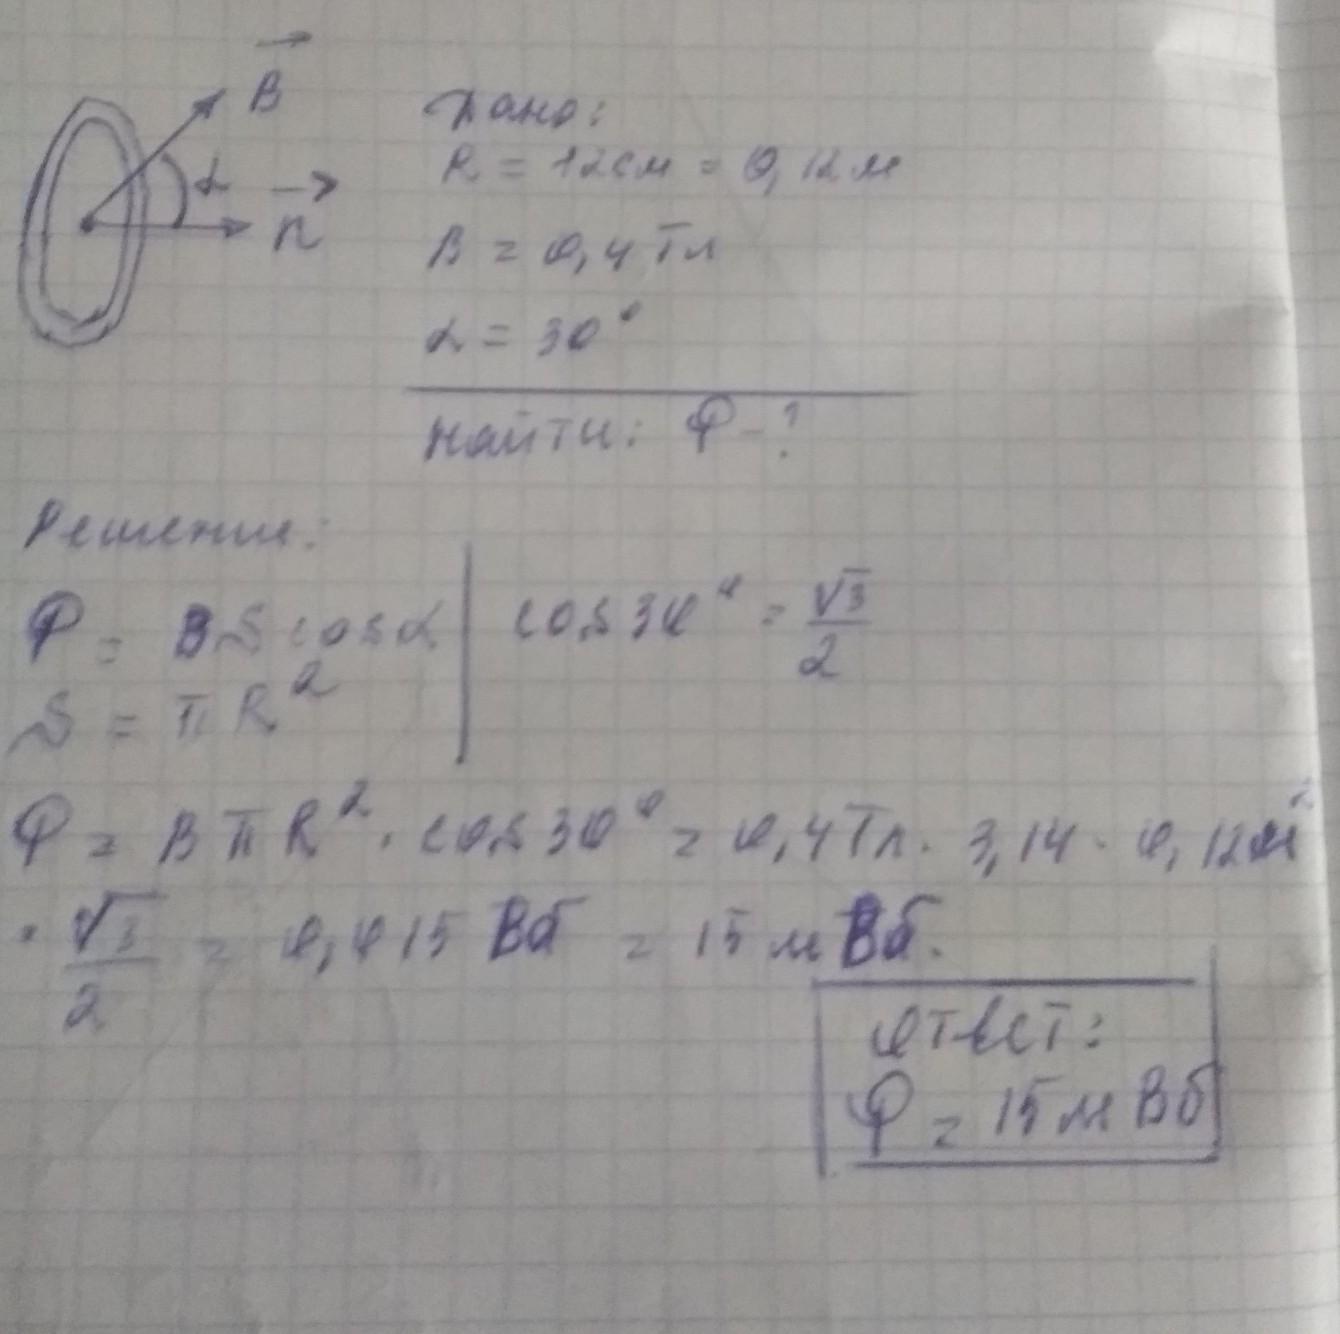 B
α
n
Дано:
R = 12см = 0,12м
B = 0,4 Тл
α = 30°
Найти: Ф - ?
Решение:
Ф = BS cosα | cos30° = √3/2
S = πR²
Ф = BπR² · cos30° = 0,4Тл · 3,14 · 0,12м²
· √3/2 = 0,015 Вб = 15 мВб.
Ответ:
Ф = 15 мВб